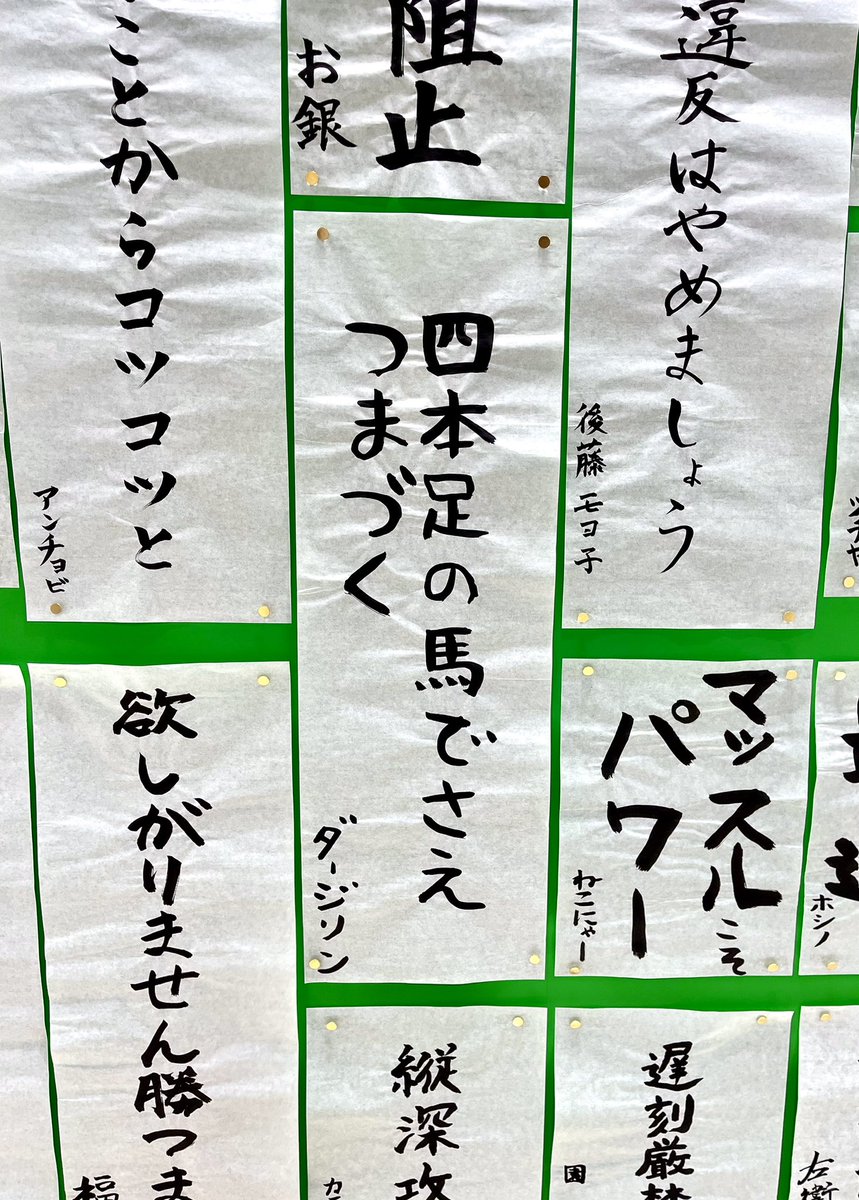 違反はやめましょう
後藤モヨ子
阻止
お銀
ことからコツコツと
アンチョビ
四本足の馬でさえ
つまづく
ダージリン
マッスルこそ
パワー
ねこにゃー
ホシノ
欲しがりません勝つま
福
縦深攻
カ
遅刻厳禁
園
左衛